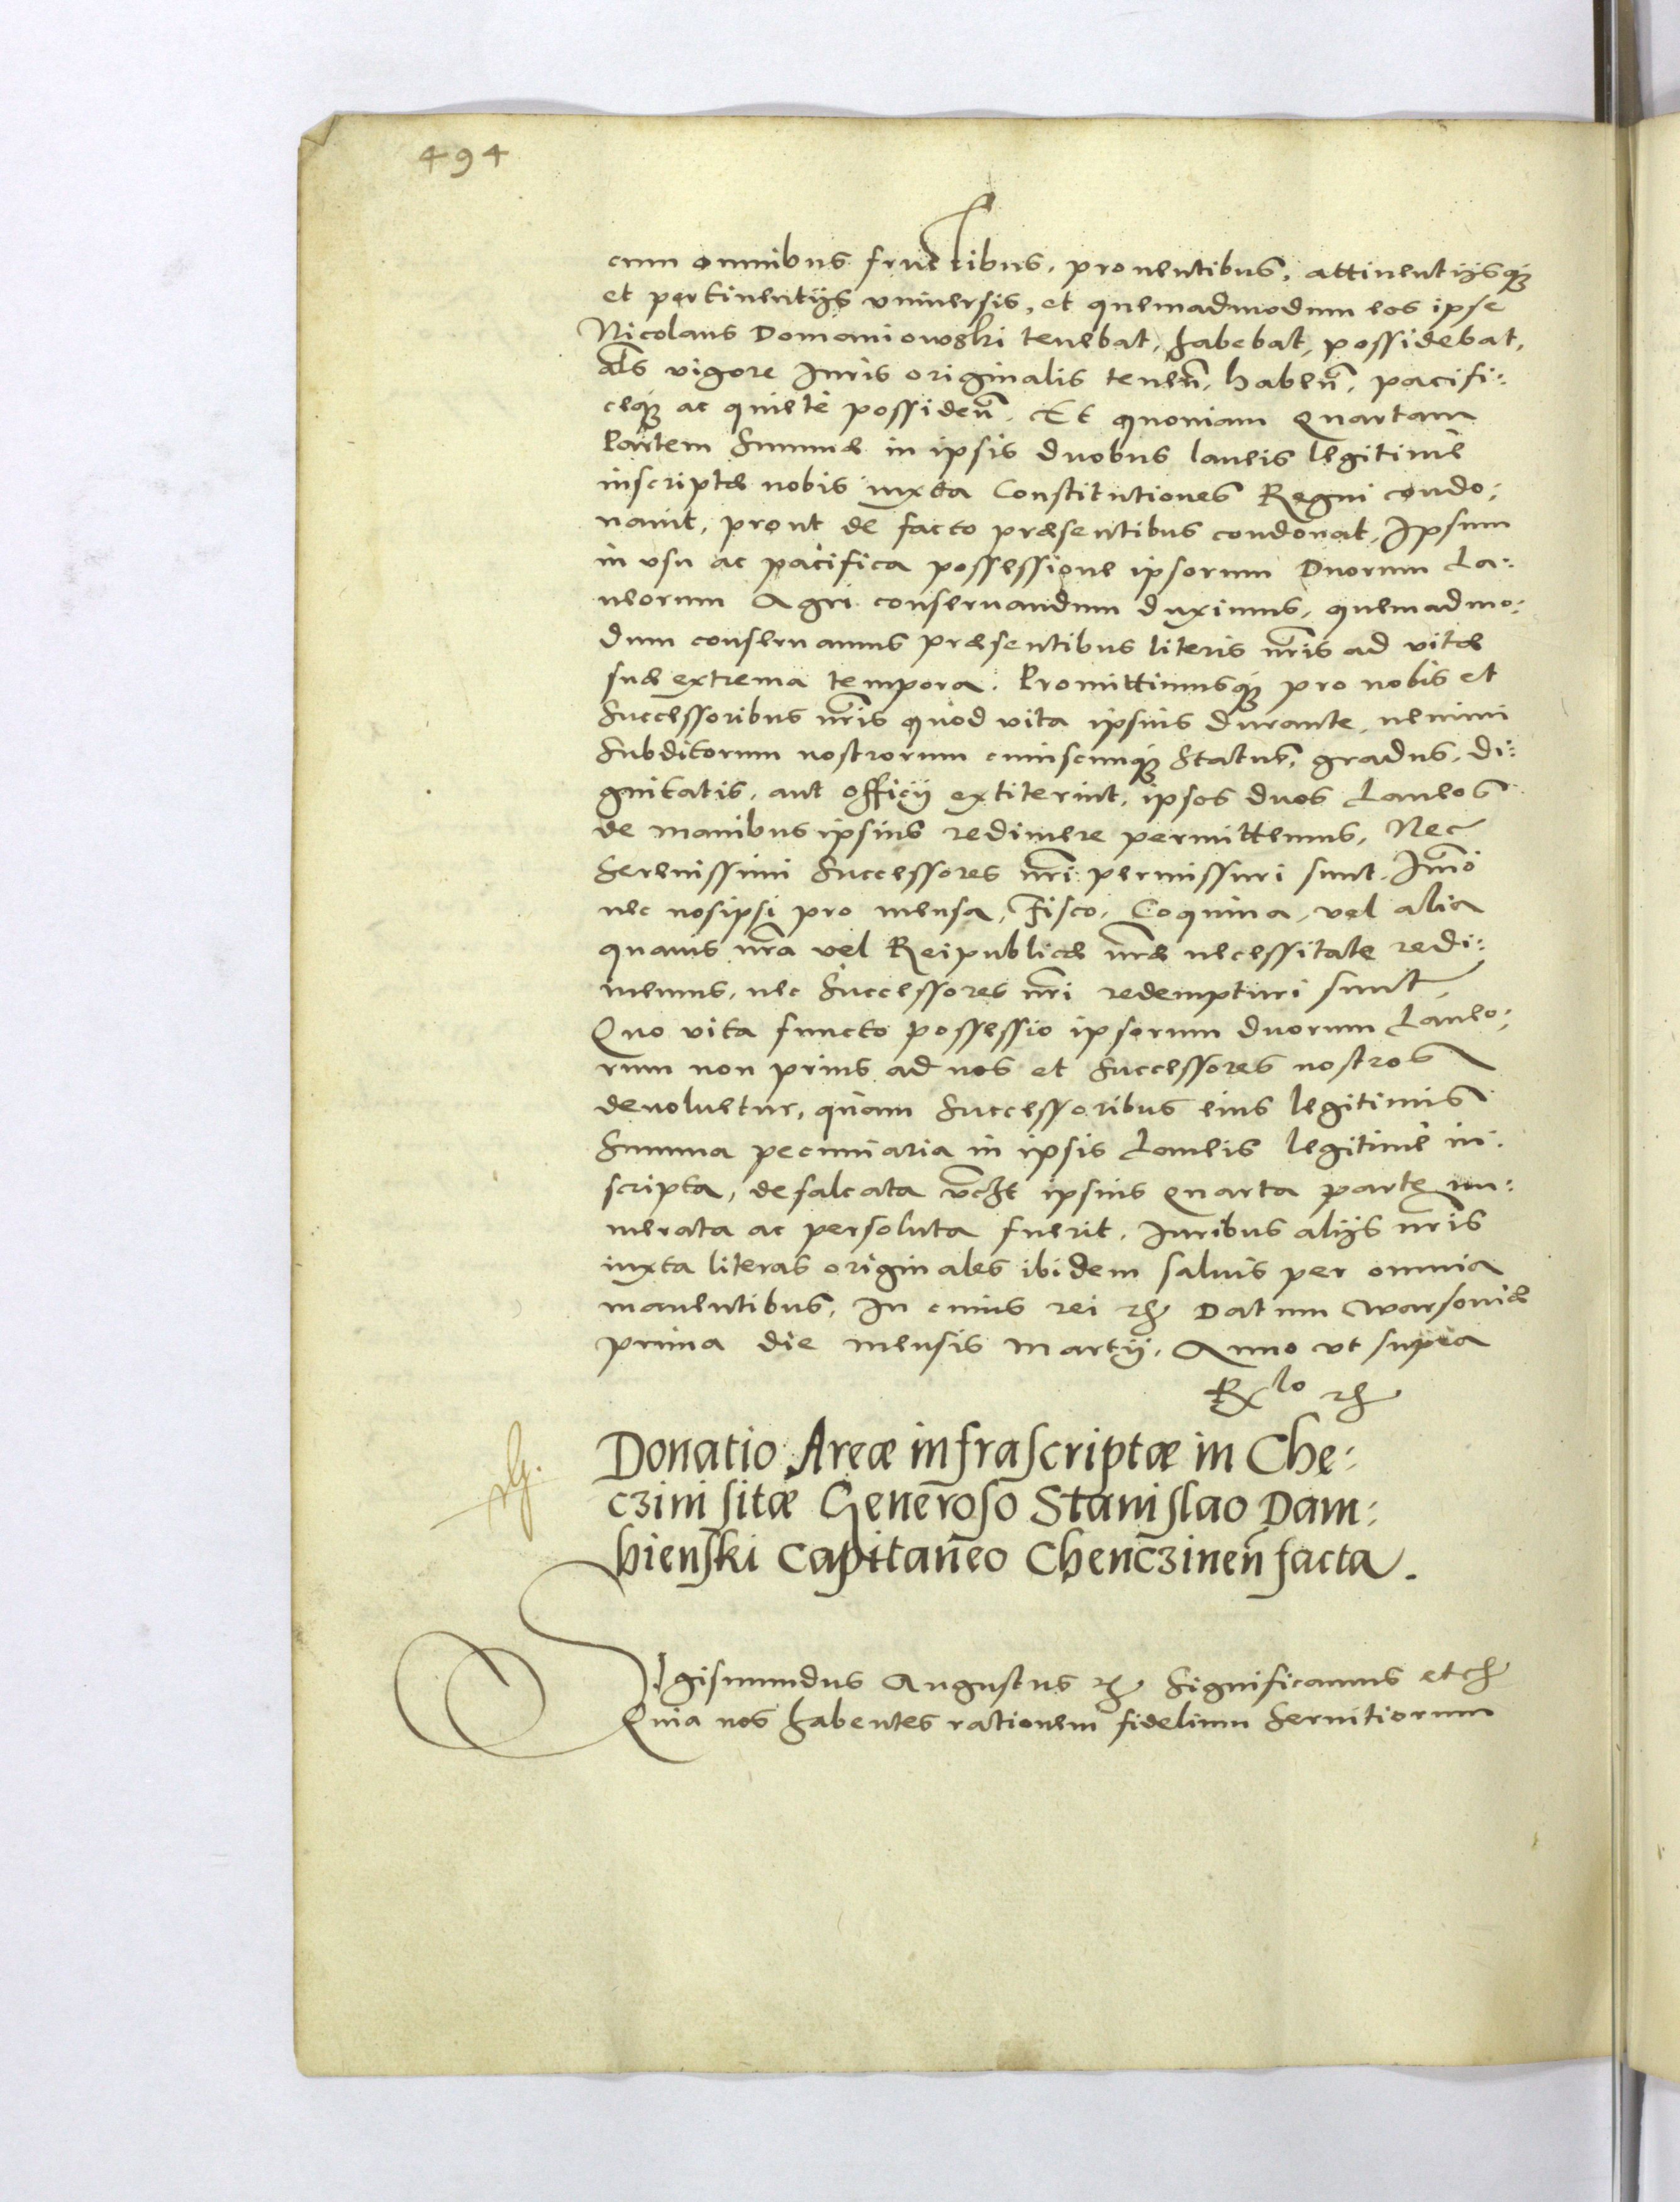 494
cum omnibus fructibus, prouentibus, attinentijsq́ꝫ
et pertinentijs vniuersis, et quemadmodum eos ipse
Nicolaus Domaniowski tenebat, habebat, possidebat,
als vigore Juris originalis tenen̄, haben̄, pacifi:
ceq́ꝫ ac quietè possiden̄. Et quoniam Quartam
Partem Summæ in ipsis duobus laneis legitimè
inscriptæ nobis iuxta Constitutiones Regni condo:
nauit, prout de facto præsentibus condonat, Ipsum
in vsu ac pacifica possessione ipsorum Duorum La:
neorum Agri conseruandum duximus, quemadmo:
dum conseruamus præsentibus literis nr̄is ad vitæ
suæ extrema tempora. Promittimusq́ꝫ pro nobis et
Successoribus nr̄is quod vita ipsius durante, nemini
Subditorum nostrorum cuiuscunq́ꝫ Status, gradus, di:
gnitatis, aut officij extiterint, ipsos duos Laneos
de manibus ipsius redimere permittemus, Nec
Serenissimi Successores nr̄i permissuri sunt. Im̄o
nec nosipsi pro mensa, Fisco, Coquina, vel alia
quauis nr̄a vel Reipublicæ nr̄æ necessitate redi:
memus, nec Successores nr̄i redempturi sunt,
Quo vita functo possessio ipsorum duorum Laneo:
rum non prius ad nos et Successores nostros
deuoluetur, quam Successoribus eius legitimis
Summa pecuniaria in ipsis Laneis legitimè in:
scripta, defalcata vc̄ꝫt ipsius Quarta parte nu:
merata ac persoluta fuerit, Juribus alijs nr̄is
iuxta literas originales ibidem saluis per omnia
manentibus, In cuius rei ꝛc̄ Datum Warsouiæ
prima die mensis Martij, Anno vt supra
Rlo ꝛc̄
Donatio Areæ infrascriptæ in Che:
czini sitæ Generoso Stanislao Dam:
bienski Capitaneo Chenczinen̄ facta.
Sigismundus Augustus ꝛc̄ Significamus etc̄
Quia nos habentes rationem fidelium Seruitiorum